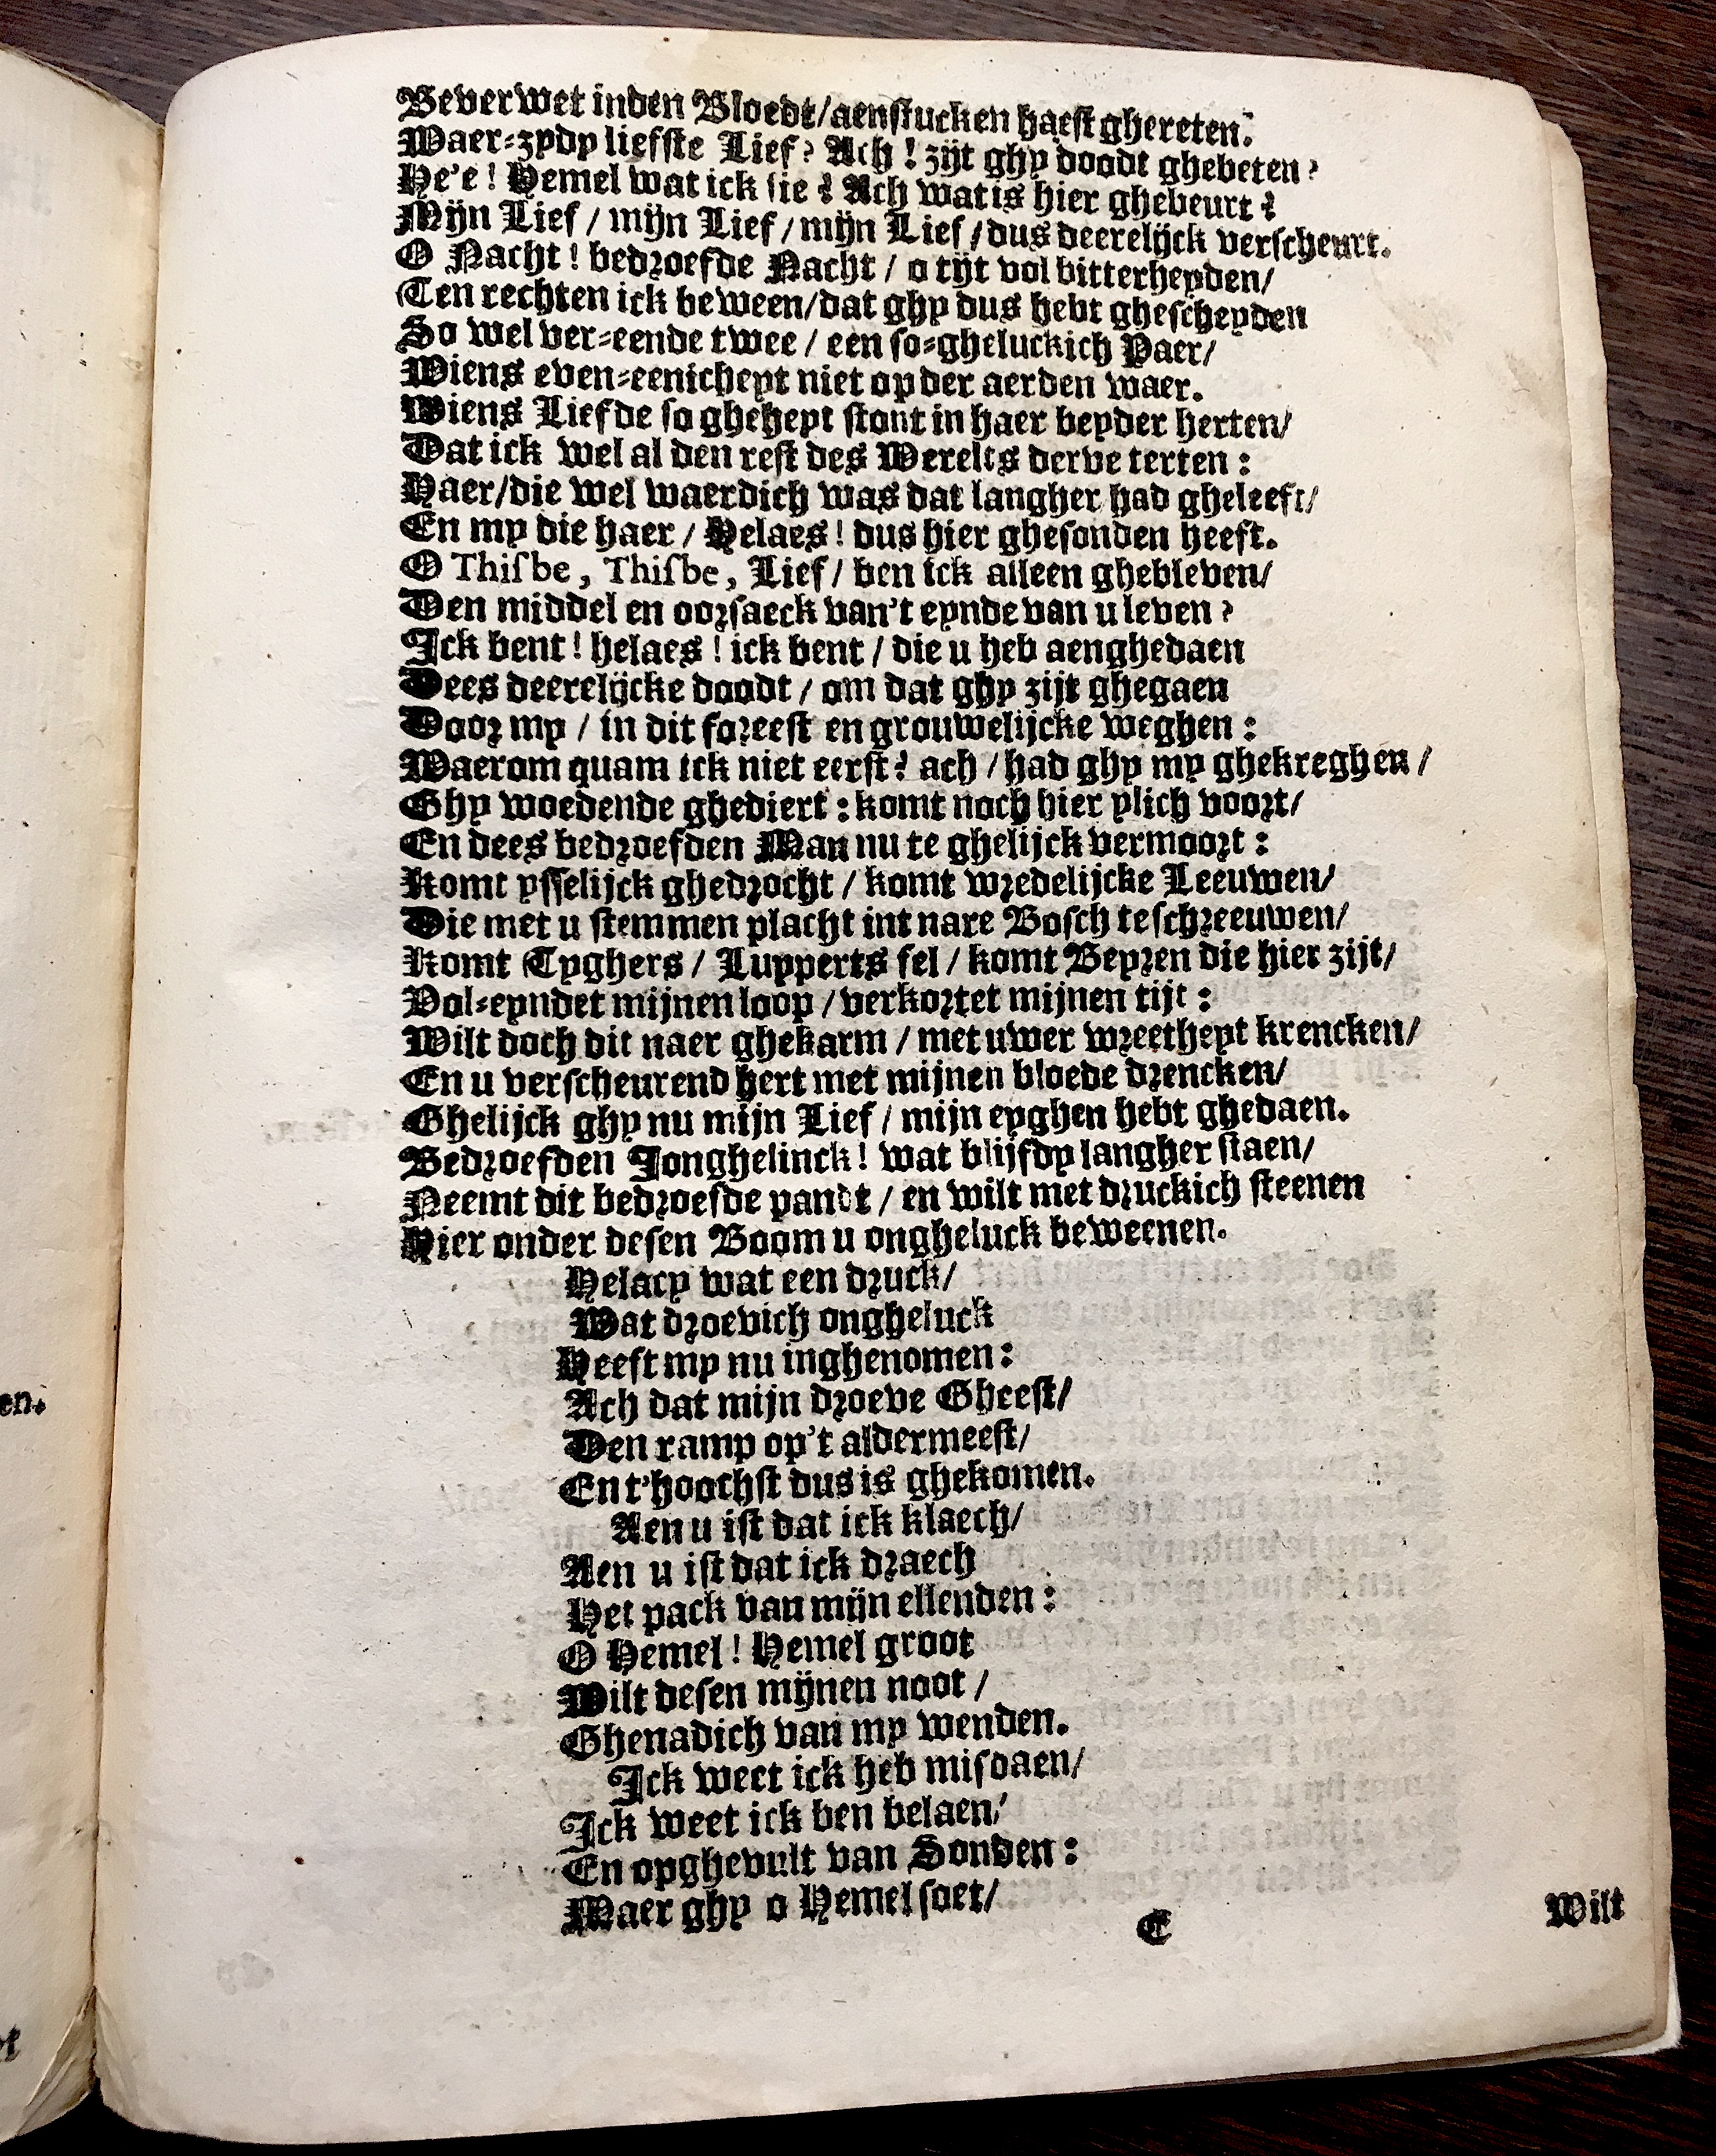 Beverwet inden Bloedt/aenstucken haest ghereten.
Waer-zydy liefste Lief? Ach! zijt ghy doodt ghebeten?
He'e! Hemel wat ick sie? Ach wat is hier ghebeurt?
Mijn Lief / mijn Lief / mijn Lief / dus deerelijck verscheurt.
O Nacht! bedroefde Nacht / o tijt vol bitterheyden/
Ten rechten ick beween/dat ghy dus hebt ghescheyden
So wel ver-eende twee / een so-gheluckich Paer/
Wiens even-eenicheyt niet op der aerden waer.
Wiens Liefde so ghehept stont in haer beyder herten/
Dat ick wel al den rest des Werelts derve terten:
Haer/die wel waerdich was dat langher had gheleeft/
En my die haer / Helaes! dus hier ghesonden heeft.
O Thisbe, Thisbe, Lief / ben ick alleen ghebleven/
Den middel en oorsaeck van't eynde van u leven?
Ick bent! helaes! ick bent / die u heb aenghedaen
Dees deerelijcke doodt / om dat ghy zijt ghegaen
Door my / in dit foreest en grouwelijcke weghen:
Waerom quam ick niet eerst? ach / had ghy my ghekreghen /
Ghy woedende ghediert: komt noch hier ylich voort/
En dees bedroefden Man nu te ghelijck vermoort:
Komt ysselijck ghedrocht / komt wredelijcke Leeuwen/
Die met u stemmen placht int nare Bosch te schreeuwen/
Komt Tyghers / Lupperts fel / komt Beyren die hier zijt/
Vol-eyndet mijnen loop / verkortet mijnen tijt:
Wilt doch dit naer ghekarm / met uwer wreetheyt krencken/
En u verscheurend hert met mijnen bloede drencken/
Ghelijck ghy nu mijn Lief / mijn eyghen hebt ghedaen.
Bedroefden Jonghelinck! wat blijfdy langher staen/
Neemt dit bedroefde pandt / en wilt met druckich steenen
Hier onder desen Boom u ongheluck beweenen.
Helacy wat een druck/
Wat droevich ongheluck
Heeft my nu inghenomen:
Ach dat mijn droeve Gheest/
Den ramp op't aldermeest/
En t'hoochst dus is ghekomen.
Aen u ist dat ick klaech/
Aen u ist dat ick draech
Het pack van mijn ellenden:
O Hemel! Hemel groot
Wilt desen mijnen noot /
Ghenadich van my wenden.
Ick weet ick heb misdaen/
Ick weet ick ben belaen/
En opghevult van Sonden:
Maer ghy o Hemel soet/
C Wilt
en.